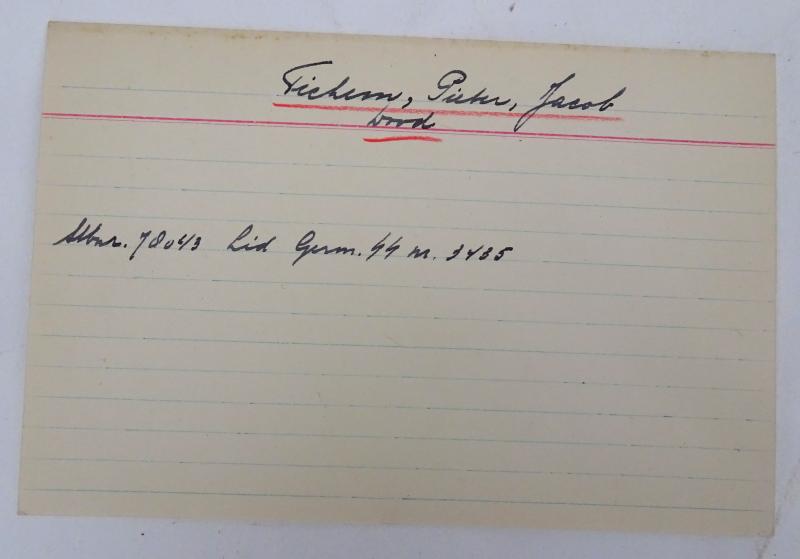 Tichem, Pieter, Jacob
Stbnr. 78043 Lid Germ. SS nr. 3435